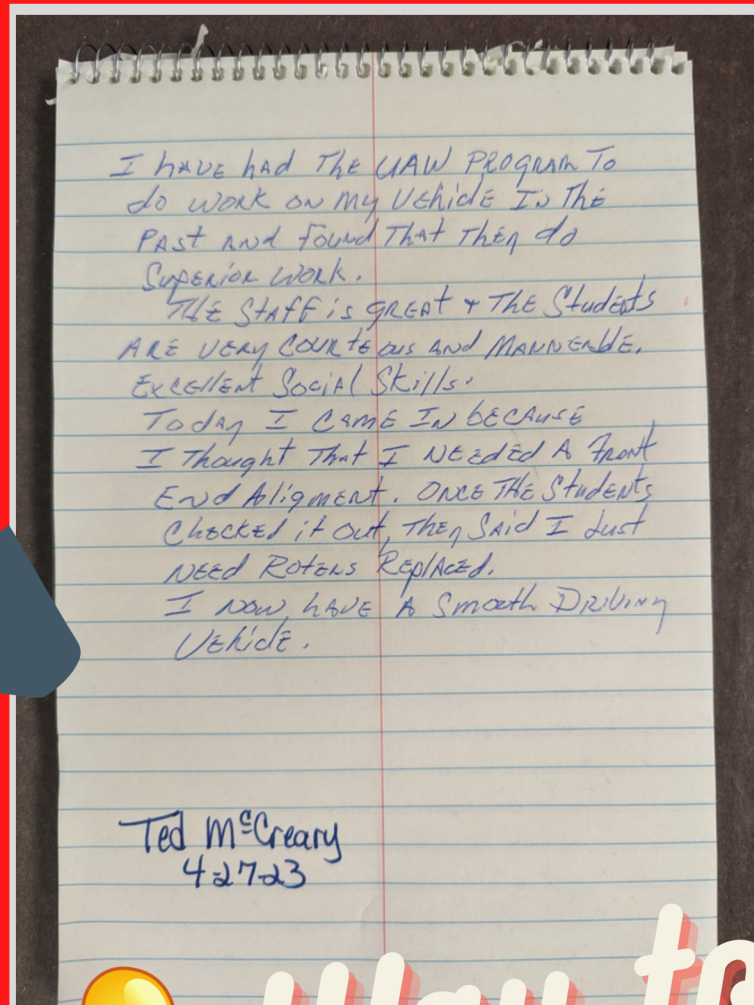 I HAVE HAD THE UAW PROGRAM TO
do WORK ON MY VEhiclE IN ThE
PAst AND found That They do
SupERioR WoRK.
ThE StAff is gREAt + ThE Students
ARE VERY COURtEous AND MANNERblE.
ExcEllENt Social Skills.
Today I CAME IN bECAUSE
I Thought That I NEEdEd A fRont
ENd Aligment. ONCE ThE StudENts
ChEckEd it out, They SAid I Just
NEEd RotERs REplAcEd.
I NOW hAVE A Smooth DRiViNg
VEhiclE.
Ted McCreary
4-27-23
Way to